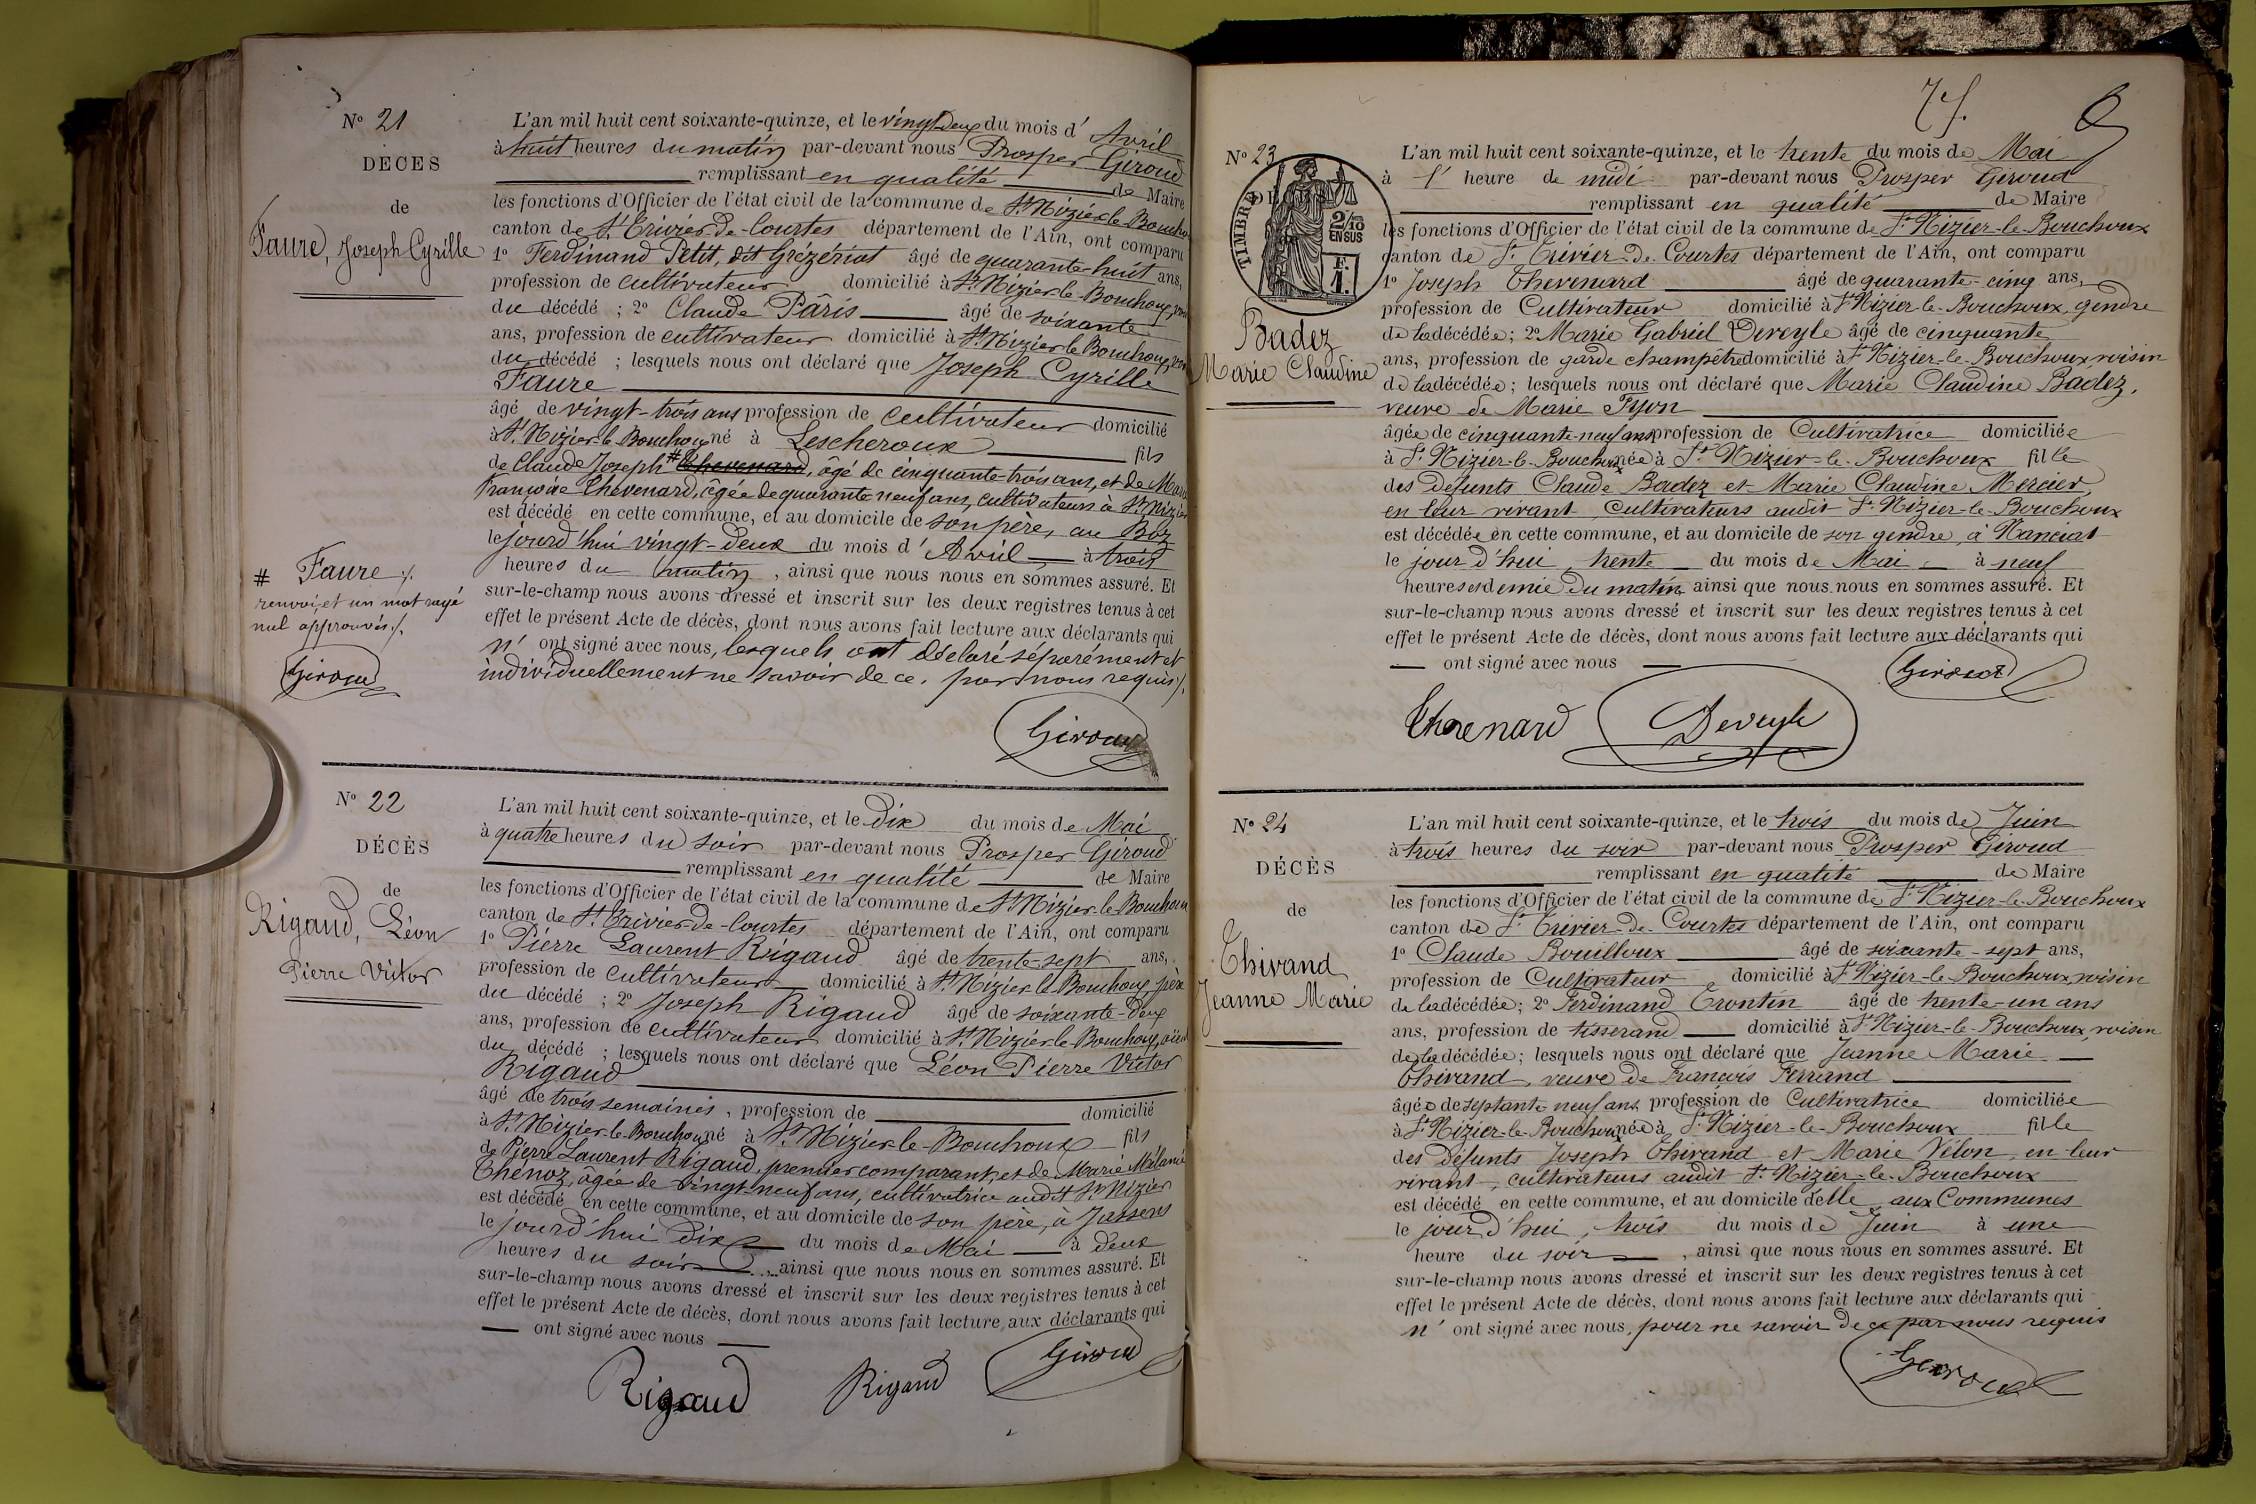 Nº 21
DÉCÈS
de
Faure, Joseph Cyrille
L'an mil huit cent soixante-quinze, et le vingt deux du mois d' Avril
à huit heures du matin par-devant nous Prosper Giroud
remplissant en qualité de Maire
les fonctions d'Officier de l'état civil de la commune de St Nizier-le-Boucho
canton de St Trivier-de-Courtes département de l'Ain, ont comparu
1º Ferdinand Petit, dit Grézériat âgé de quarante-huit ans,
profession de cultivateur domicilié à St Nizier-le-Bouchoux,
du décédé ; 2º Claude Pâris âgé de soixante
ans, profession de cultivateur domicilié à St Nizier le Bouchoux,
du décédé ; lesquels nous ont déclaré que Joseph Cyrille
Faure
âgé de vingt-trois ans profession de cultivateur domicilié
à St Nizier-le-Bouchoux né à Lescheroux fils
de Claude Joseph # Chevenard, âgé de cinquante-trois ans, et de Marie
Françoise Thévenard, âgée de quarante neuf ans, cultivateurs à St Nizier
est décédé en cette commune, et au domicile de son père, au Boz
le jourd'hui vingt-deux du mois d' Avril à trois
heures du matin, ainsi que nous nous en sommes assuré. Et
sur-le-champ nous avons dressé et inscrit sur les deux registres tenus à cet
effet le présent Acte de décès, dont nous avons fait lecture aux déclarants qui
n' ont signé avec nous, lesquels ont déclaré séparément et
individuellement ne savoir de ce, par nous requis /.
# Faure /.
renvoi, et un mot rayé
nul approuvés /.
Giroud
Giroud
Nº 22
DÉCÈS
de
Rigaud, Léon
Pierre Victor
L'an mil huit cent soixante-quinze, et le dix du mois de Mai
à quatre heures du soir par-devant nous Prosper Giroud
remplissant en qualité de Maire
les fonctions d'Officier de l'état civil de la commune de St Nizier-le-Bouchoux
canton de St Trivier-de-Courtes département de l'Ain, ont comparu
1º Pierre Laurent Rigaud âgé de trente-sept ans,
profession de cultivateur domicilié à St Nizier le Bouchoux père
du décédé ; 2º Joseph Rigaud âgé de soixante-deux
ans, profession de cultivateur domicilié à St Nizier-le-Bouchoux, aïeul
du décédé ; lesquels nous ont déclaré que Léon Pierre Victor
Rigaud
âgé de trois semaines, profession de domicilié
à St Nizier-le-Bouchoux né à St Nizier-le-Bouchoux fils
de Pierre Laurent Rigaud, premier comparant, et de Marie Mélanie
Thénoz, âgée de vingt-neuf ans, cultivatrice audit St Nizier
est décédé en cette commune, et au domicile de son père, à Jassens
le jourd'hui dix du mois de Mai à deux
heures du soir ainsi que nous nous en sommes assuré. Et
sur-le-champ nous avons dressé et inscrit sur les deux registres tenus à cet
effet le présent Acte de décès, dont nous avons fait lecture aux déclarants qui
ont signé avec nous
Rigaud Rigaud Giroud
Nº 23
TIMBRE
2/10
EN SUS
F.
1.
Badez
Marie Claudine
L'an mil huit cent soixante-quinze, et le trente du mois de Mai
à l' heure de midi par-devant nous Prosper Giroud
remplissant en qualité de Maire
les fonctions d'Officier de l'état civil de la commune de St Nizier-le-Bouchoux
canton de St Trivier-de-Courtes département de l'Ain, ont comparu
1º Joseph Thevenard âgé de quarante-cinq ans,
profession de Cultivateur domicilié à St Nizier-le-Bouchoux, gendre
de la décédée ; 2º Marie Gabriel Deveyle âgé de cinquante
ans, profession de garde champêtre domicilié à St Nizier-le-Bouchoux, voisin
de la décédée ; lesquels nous ont déclaré que Marie Claudine Badez,
veuve de Marie Pyon
âgée de cinquante-neuf ans profession de Cultivatrice domiciliée
à St Nizier-le-Bouchoux née à St Nizier-le-Bouchoux fille
des défunts Claude Badez et Marie Claudine Mercier,
en leur vivant, Cultivateurs audit St Nizier-le-Bouchoux
est décédée en cette commune, et au domicile de son gendre, à Nanciat
le jourd'hui, trente du mois de Mai à neuf
heures et demie du matin ainsi que nous nous en sommes assuré. Et
sur-le-champ nous avons dressé et inscrit sur les deux registres tenus à cet
effet le présent Acte de décès, dont nous avons fait lecture aux déclarants qui
ont signé avec nous
Giroud
Thevenard Deveyle
Nº 24
DÉCÈS
de
Thivand
Jeanne Marie
L'an mil huit cent soixante-quinze, et le trois du mois de Juin
à trois heures du soir par-devant nous Prosper Giroud
remplissant en qualité de Maire
les fonctions d'Officier de l'état civil de la commune de St Nizier-le-Bouchoux
canton de St Trivier-de-Courtes département de l'Ain, ont comparu
1º Claude Bouilloux âgé de soixante-sept ans,
profession de Cultivateur domicilié à St Nizier-le-Bouchoux, voisin
de la décédée ; 2º Ferdinand Trontin âgé de trente-un ans
ans, profession de tisserand domicilié à St Nizier-le-Bouchoux, voisin
de la décédée ; lesquels nous ont déclaré que Jeanne Marie
Thivand, veuve de François Ferrand
âgée de septante neuf ans profession de Cultivatrice domiciliée
à St Nizier-le-Bouchoux née à St Nizier-le-Bouchoux fille
des défunts Joseph Thivand et Marie Vélon, en leur
vivant, cultivateurs audit St Nizier-le-Bouchoux
est décédé en cette commune, et au domicile d'elle, aux Communes
le jourd'hui, trois du mois de Juin à une
heure du soir, ainsi que nous nous en sommes assuré. Et
sur-le-champ nous avons dressé et inscrit sur les deux registres tenus à cet
effet le présent Acte de décès, dont nous avons fait lecture aux déclarants qui
n' ont signé avec nous, pour ne savoir de ce par nous requis
Giroud